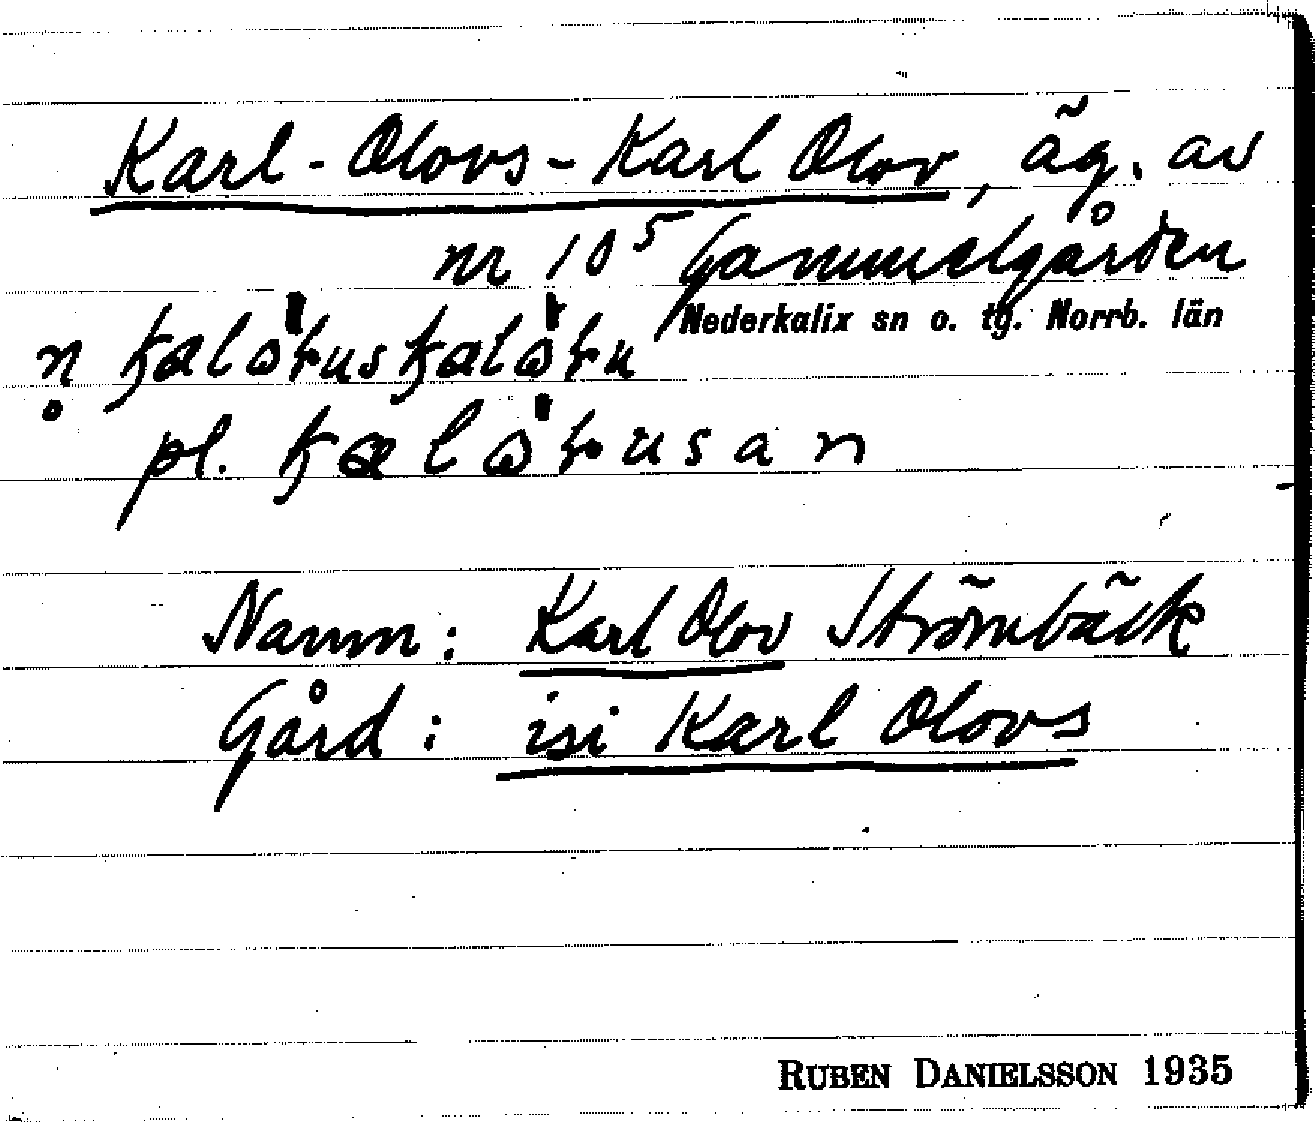 Karl-Olovs-Karl Olov, äg. av
nr 10⁵ Gammelgården
Nederkalix sn o. tg. Norrb. län
pl.
Namn: Karl Olov Strömbäck
Gård: isi Karl Olovs
RUBEN DANIELSSON 1935